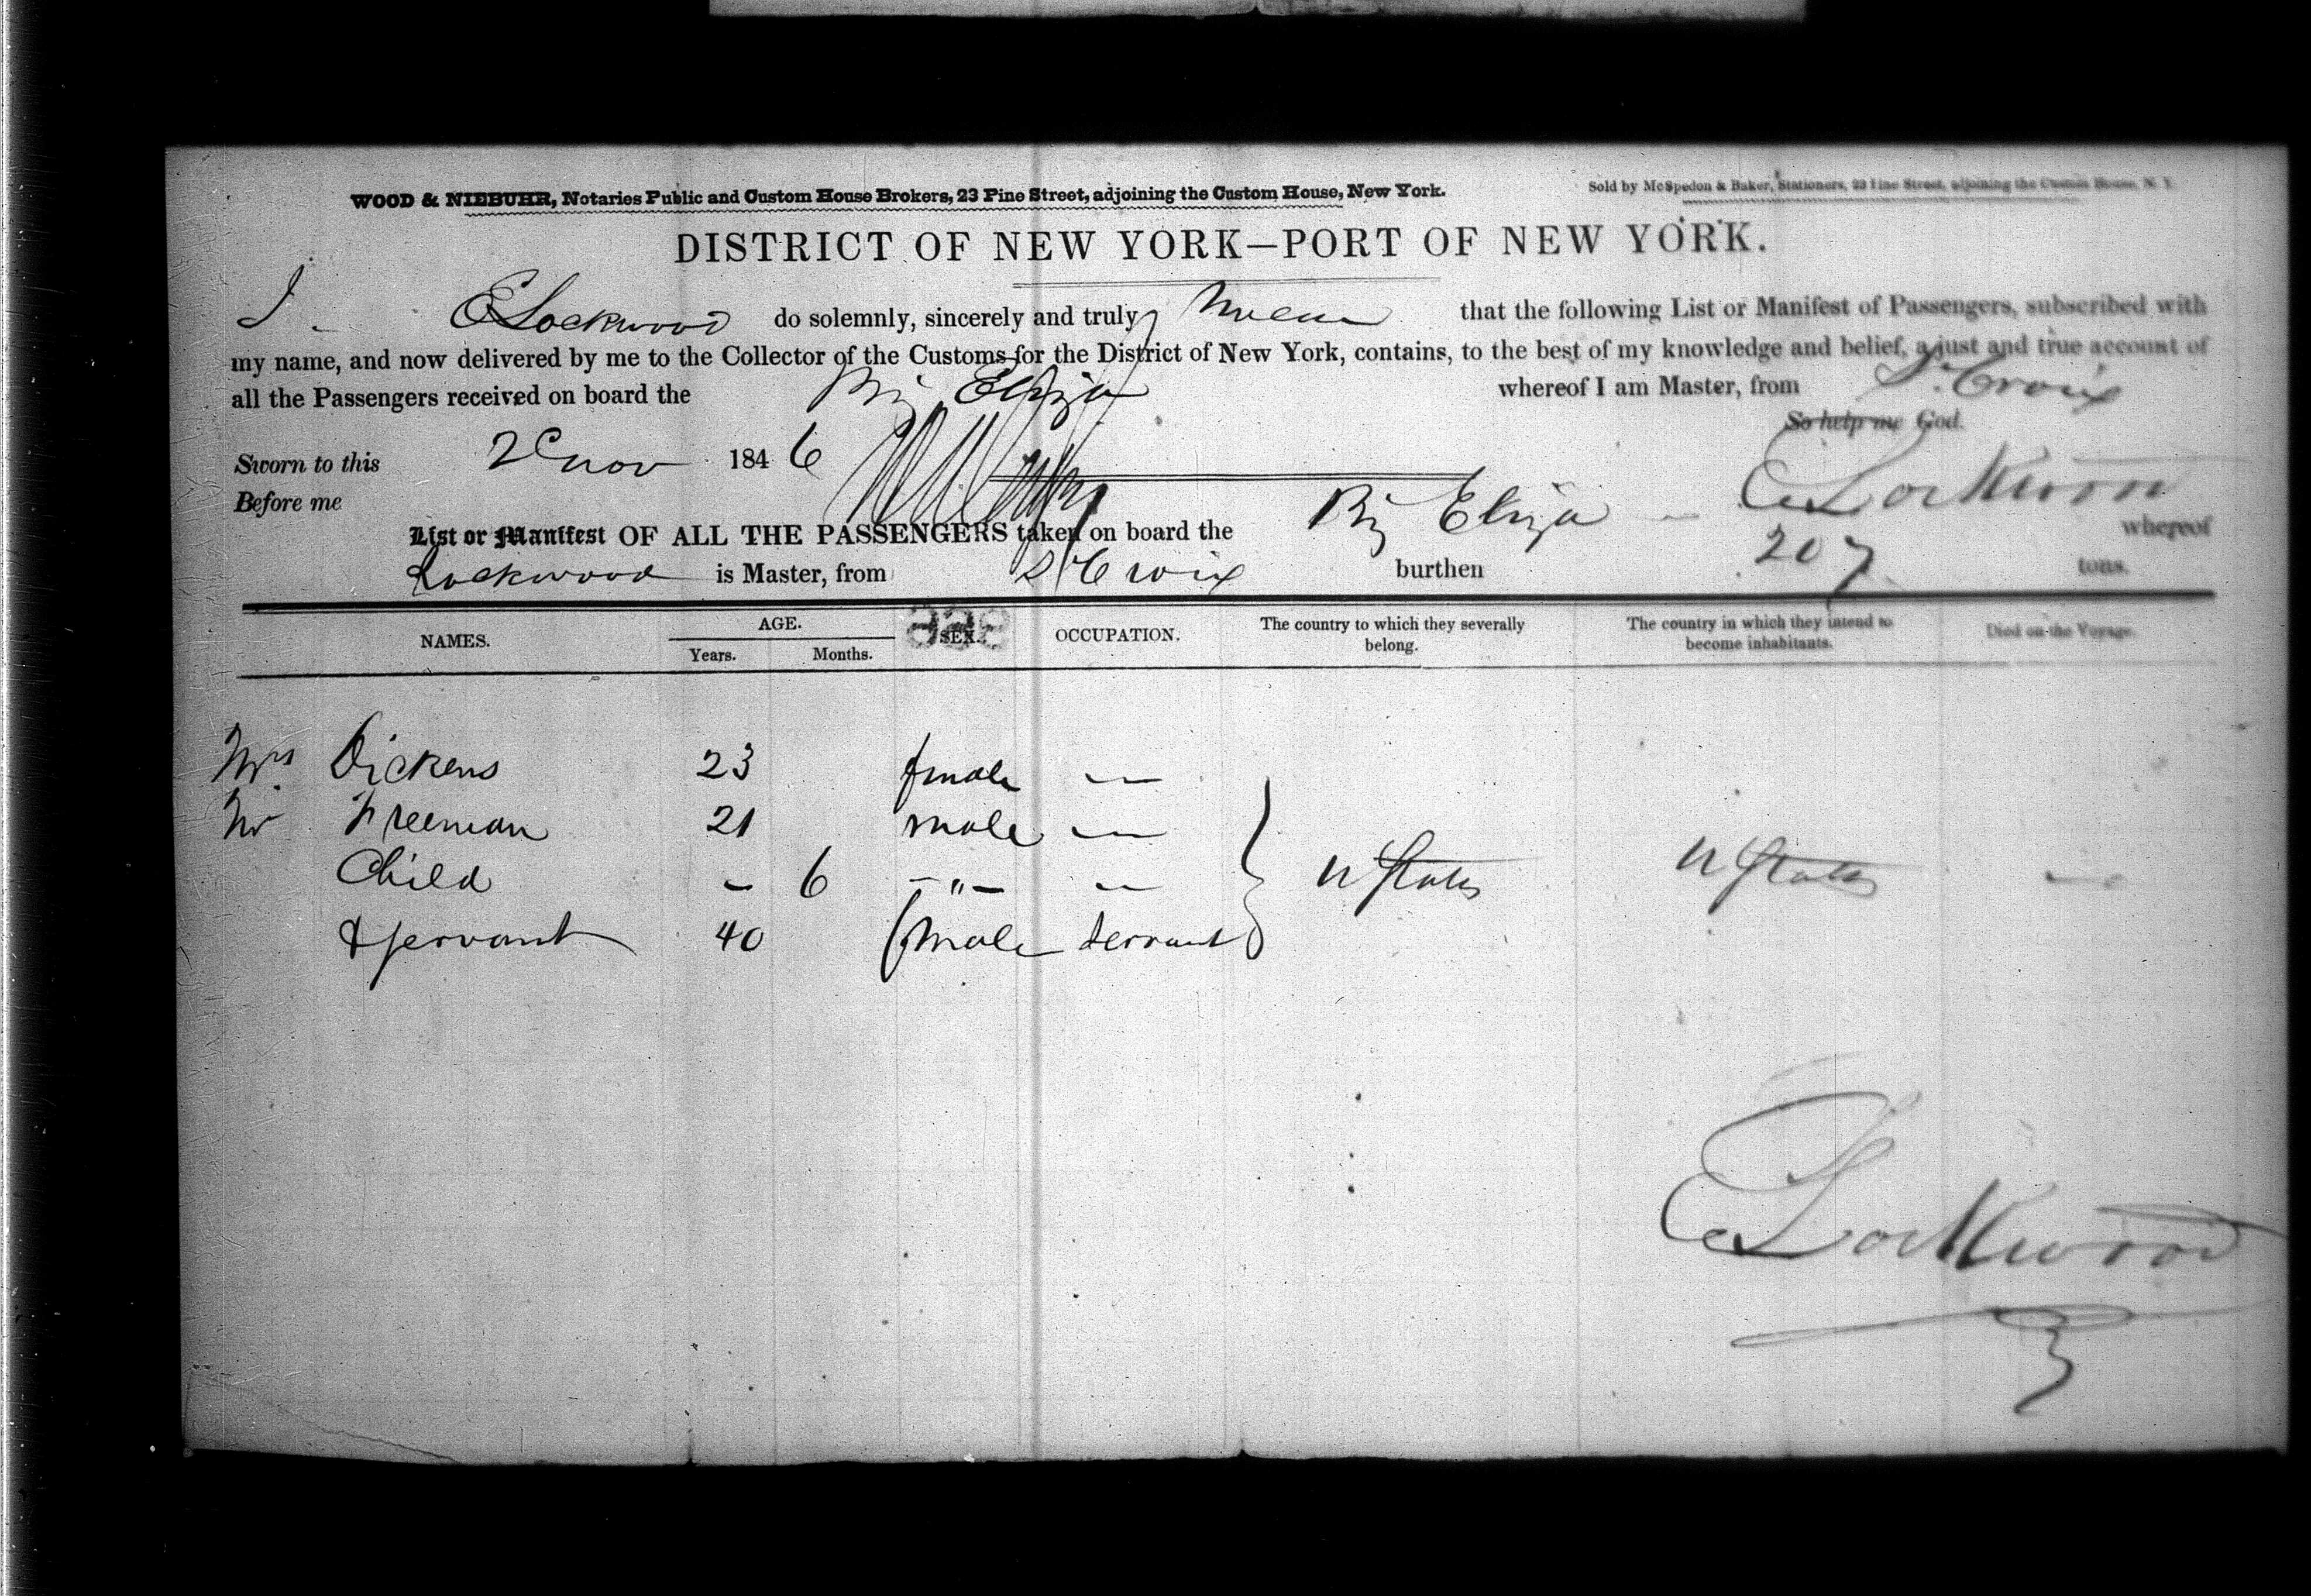 WOOD & NIEBUHR, Notaries Public and Custom House Brokers, 23 Pine Street, adjoining the Custom House, New York.
Sold by McSpedon & Baker, Stationers, 23 Pine Street, adjoining the Custom House, N. Y.
DISTRICT OF NEW YORK—PORT OF NEW YORK.
I E Lockwood do solemnly, sincerely and truly swear that the following List or Manifest of Passengers, subscribed with
my name, and now delivered by me to the Collector of the Customs for the District of New York, contains, to the best of my knowledge and belief, a just and true account of
all the Passengers received on board the Brig Eliza whereof I am Master, from St Croix
So help me God.
Sworn to this 2 Nov 1846
Before me E Lockwood
List or Manifest OF ALL THE PASSENGERS taken on board the Brig Eliza whereof
Lockwood is Master, from St Croix burthen 207 tons.
NAMES. AGE. Years. Months. SEX. OCCUPATION. The country to which they severally belong. The country in which they intend to become inhabitants. Died on the Voyage.
Mrs Dickens 23 female —
Mr Freeman 21 male —
Child - 6 - " - — U States U States —
& servant 40 female servant
E Lockwood